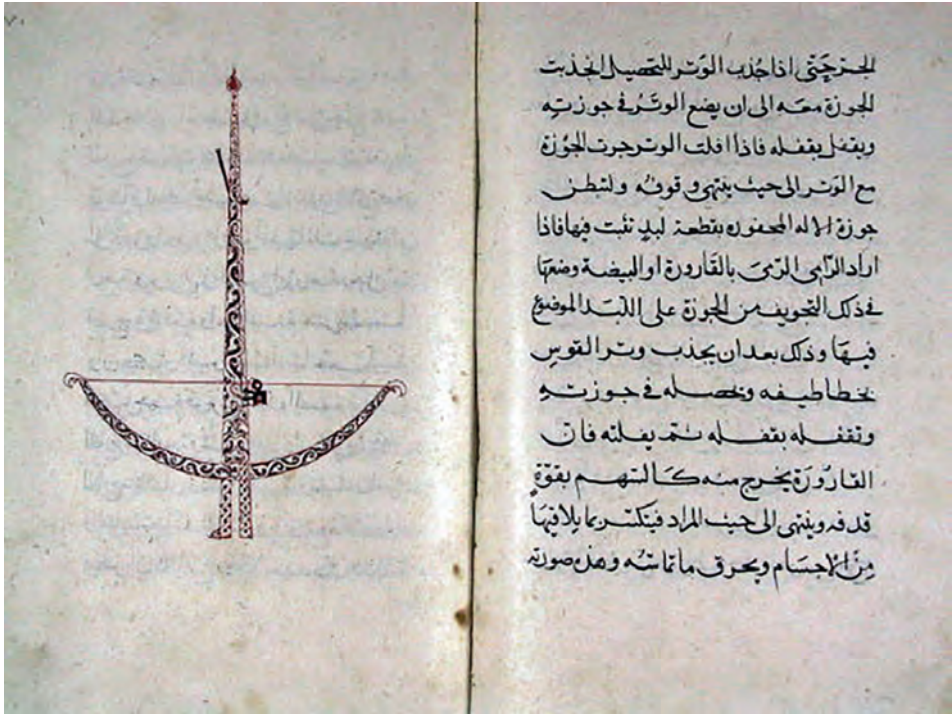 الجر حَتّى اذا جُذب الوَتر للتحصيل انجذبت
الجوزة معه الى ان يضع الوتَرُ فى جوزتهِ
ويقفل بقفله فاذا افلت الوتر جرت الجَوْزة
مع الوَتر الى حيث ينتهى وقوفُه ولتبطن
جوزة الاله المحفوره بقطعة لبدٍ تثبت فيها فاذا
اراد الرّامى الرّمىَ بالقَارورة او البيضة وضعهَا
فى ذلك التجويف من الجوزة على اللّبَد الموضوع
فيهَا وذلك بعد ان يجذب وتر القوسِ
بخطاطيفه ويحصله فى جوزتهِ
وتقفله بقفله ثم يفلته فان
القارُورَة يخرج منه كالسّهم بقوّةِ
قدفه وينتهى الى حيث المراد فينكسر بما يلاقيها
مِن الاجسام ويحرق ما تماسّه وهذه صورته